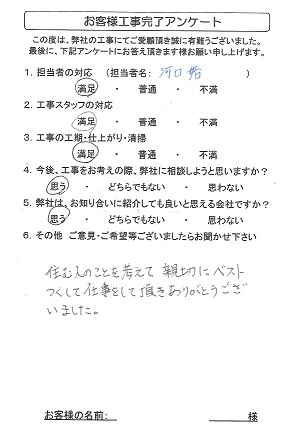 お客様工事完了アンケート
この度は、弊社の工事にてご愛顧頂き誠に有難うございました。
最後に、下記アンケートにお答え頂きます様お願い申し上げます。
1. 担当者の対応 (担当者名: 河口 皓 )
満足 ・ 普通 ・ 不満
2. 工事スタッフの対応
満足 ・ 普通 ・ 不満
3. 工事の工期・仕上がり・清掃
満足 ・ 普通 ・ 不満
4. 今後、工事をお考えの際、弊社に相談しようと思いますか?
思う ・ どちらでもない ・ 思わない
5. 弊社は、お知り合いに紹介しても良いと思える会社ですか?
思う ・ どちらでもない ・ 思わない
6. その他 ご意見・ご希望等ございましたらお聞かせ下さい
住む人のことを考えて 親切にベスト
つくして仕事をして頂きありがとうござ
いました。
お客様の名前: 様